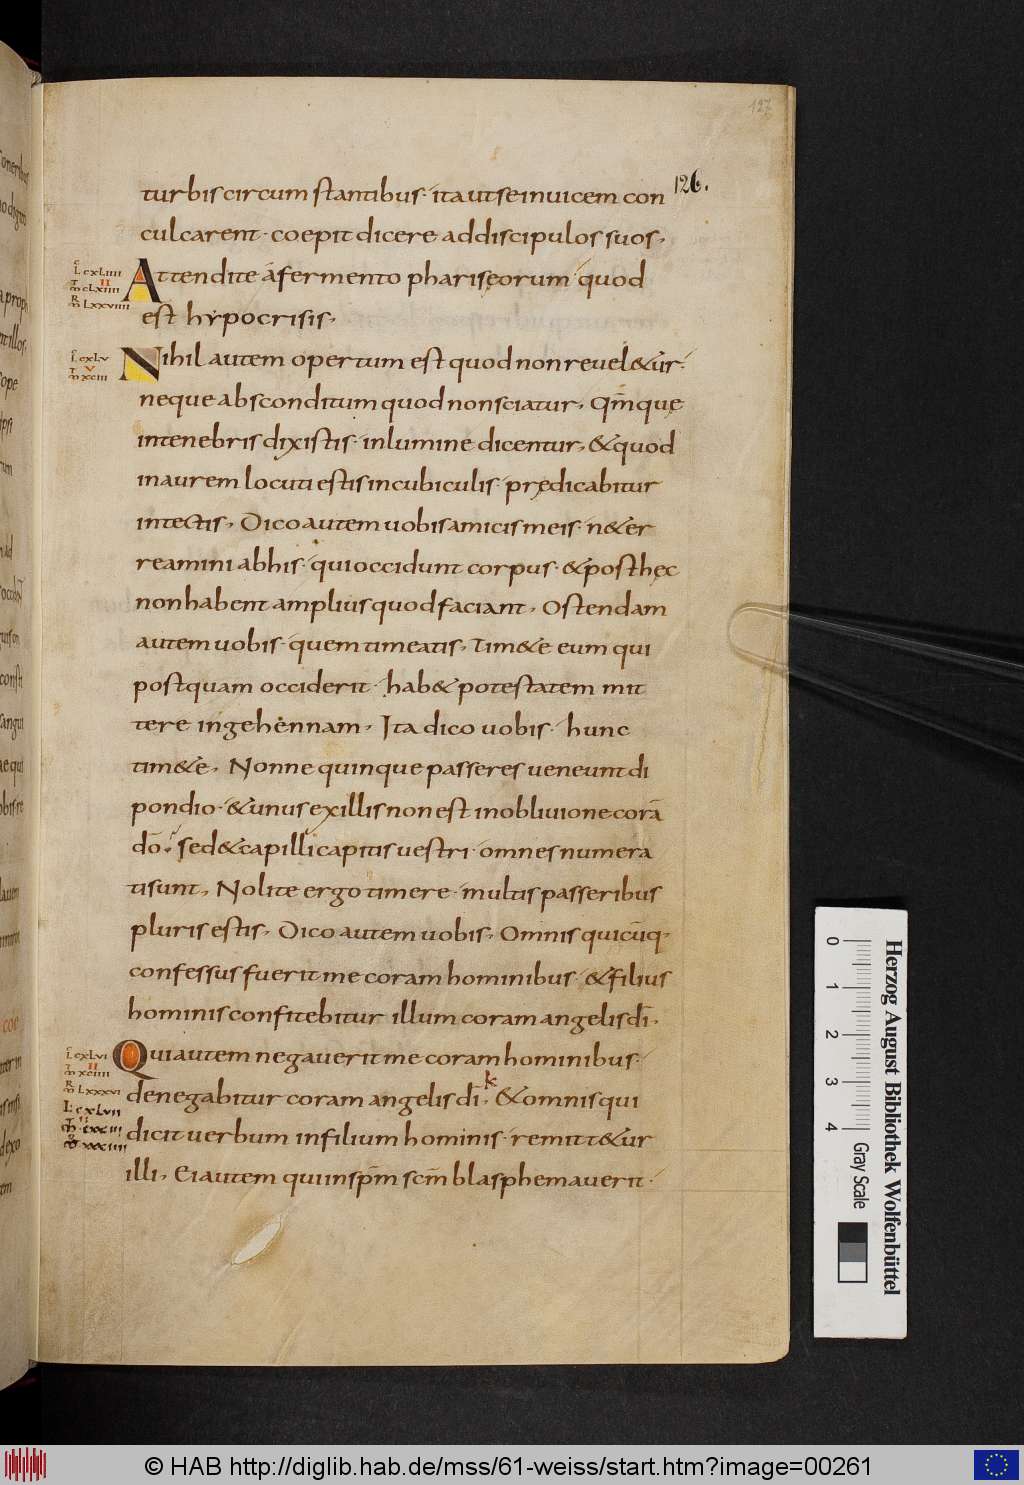 127
126.
turbis circum stantibus· ita ut se inuicem con
culcarent· coepit dicere ad discipulos suos,
Attendite a fermento pharisęorum· quod
est hypocrisis,
Nihil autem opertum est quod non reuel&ur·
neque absconditum quod non sciatur, Qm̄ quę
in tenebris dixistis· in lumine dicentur, & quod
in aurem locuti estis in cubiculis· prędicabitur
in tectis, Dico autem uobis amicis meis· n& er
reamini ab his· qui occidunt corpus· & post hęc
non habent amplius quod faciant, Ostendam
autem uobis· quem timeatis, Tim&e eum qui
postquam occiderit· hab& potestatem mit
tere in gehennam, Ita dico uobis· hunc
tim&e, Nonne quinque passeres ueneunt di
pondio· & unus ex illis non est in obliuione corā
dō; sed & capilli capitis uestri· omnes numera
ti sunt, Nolite ergo timere· multis passeribus
pluris estis, Dico autem uobis, Omnis quicūq·
confessus fuerit me coram hominibus· & filius
hominis confitebitur illum coram angelis dī,
Qui autem negauerit me coram hominibus·
denegabitur coram angelis dī, & omnis qui
dicit uerbum in filium hominis· remitt&ur
illi, Ei autem qui in spm̄ scm̄ blasphemauerit·
L cxLiiii
II
m cLxiiii
m Lxxviiii
L cxLv
V
m xciii
L cxLvi
II
m xciiii
m Lxxxvi
L cxLvii
Herzog August Bibliothek Wolfenbüttel
0 1 2 3 4
Gray Scale
© HAB http://diglib.hab.de/mss/61-weiss/start.htm?image=00261